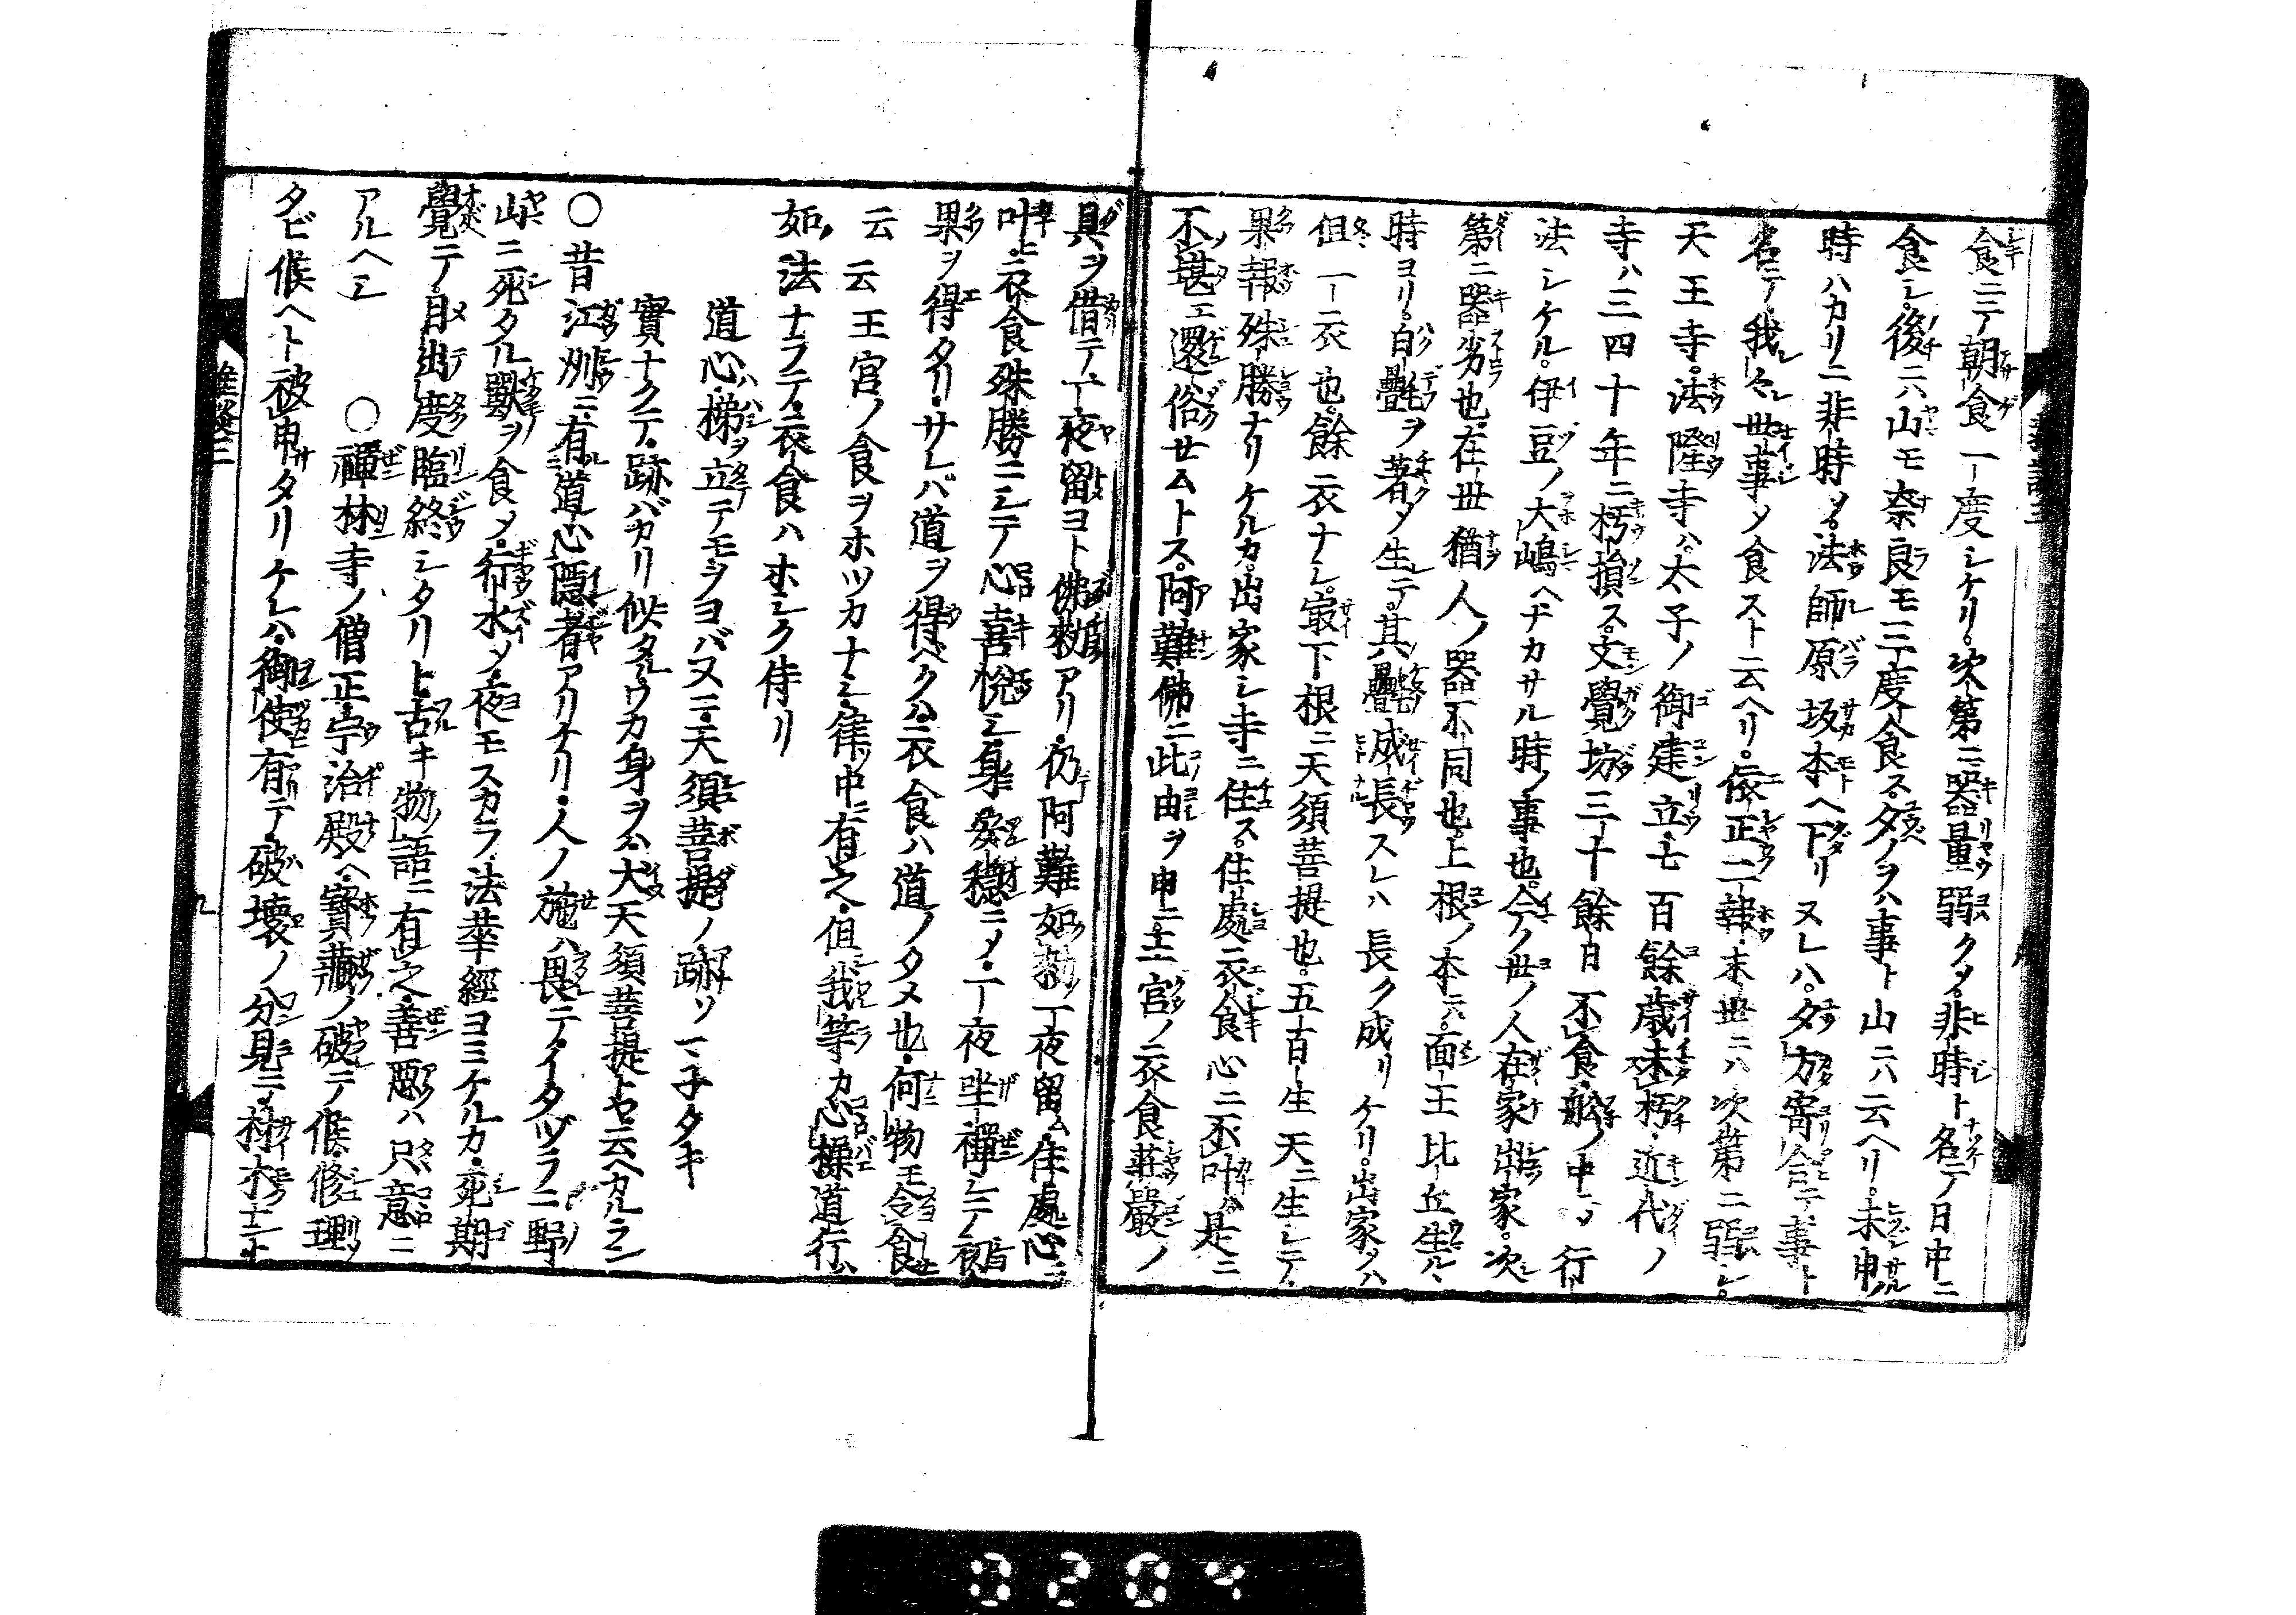 食ニテ朝食一度シケリ。次第ニ器量弱クシテ。非時ト名テ日中ニ
食シ。後ニハ山モ奈良モ三度食ス。夕ノヲハ事ト山ニハ云ヘリ。未申ノ
時ハカリニ非時シテ。法師原坂本ヘ下リヌレハ。夕方寄合テ事ト
名テ。我々世事シテ食スト云ヘリ。依正二報。末世ニハ次第ニ弱シ。
天王寺。法隆寺ハ。太子ノ御建立。七百餘歳未朽。近代ノ
寺ハ三四十年ニ朽損ス。文覺坊三十餘日不食。舩ノ中ニシテ行
法シケル。伊豆ノ大嶋ヘナカサル時ノ事也。今ノ世ノ人在家出家。次
第ニ器劣也。在世猶人ノ器不同也。上根ノ本ニハ。面王比丘生ルヽ
時ヨリ。白氎ヲ著シテ生レテ。其氎成長スレハ長ク成リケリ。出家タハ
但一衣也。餘ニ衣ナシ。最下根ニ天須菩提也。五百生天ニ生レテ。
果報殊勝ナリケルカ。出家シ寺ニ住ス。住處衣食心ニ不叶ハ。是ニ
不堪エ還俗セムトス。阿難佛ニ此由ヲ申ニ。王宮ノ衣食莊嚴ノ
具ヲ借テ。一夜留ヨト佛勅アリ。仍阿難如勅一夜留ム。住處心ニ
叶ヒ。衣食殊勝ニシテ心喜悦シ。身安穩ニシテ。一夜坐禪シテ羅漢
果ヲ得タリ。サレバ道ヲ得ベクハ。衣食ハ道ノタメ也。何物モ令食
云云王宮ノ食ヲホツカナシ。律中ニ有之。但我等カ心操道行ハ
如法ナラテ。衣食ハホシク侍リ
道心ノ梯ヲ立テモヲヨバヌ二天須菩提ノ跡ソ一子タキ
實ナクテ跡バカリ似タルウカ身ヲハ大天須菩提トヤ云ヘカルラン
〇昔江州ニ有道心隱者アリケリ。人ノ施ハ畏テ。イタヅラニ野
山ニ死タル獸ヲ食シテ。行水シテ。夜モスカラ法華經ヨミケルカ。死期
覺ニテ。目出度臨終シタリト古キ物語ニ有之。善惡ハ只意ニ
アルヘシ　〇禪林寺ノ僧正。宇治殿ヘ。寶藏ノ破テ候。修理シテ
タビ候ヘト被申タリケレハ。御使有テ。破壊ノ分見ニ。材木
雜談三
九